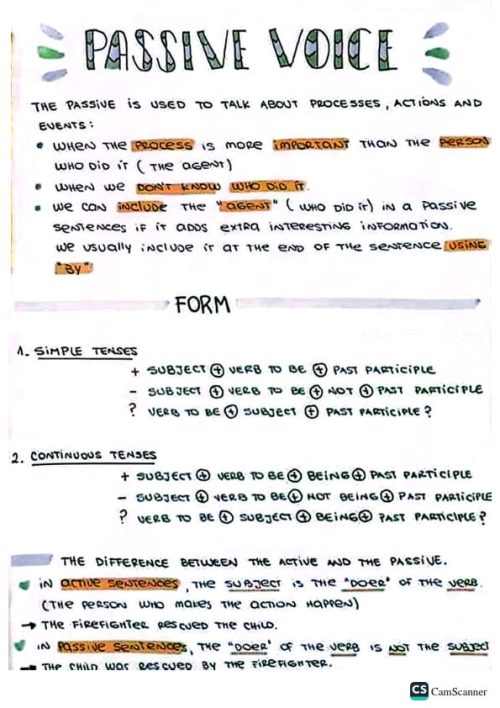 PASSIVE VOICE
THE PASSIVE iS USED TO TALK ABOUT PROCESSES, ACTIONS AND
EVENTS:
• WHEN THE PROCESS iS MORE iMPORTANT THAN THE PERSON
WHO DiD iT (THE AGENT)
• WHEN WE DON'T KNOW WHO DiD iT.
• WE CAN iNCLUDE THE "AGENT" (WHO DiD iT) iN A PASSiVE
SENTENCES iF iT ADDS EXTRA iNTERESTiNG iNFORMATiON.
WE USUALLY iNCLUDE iT AT THE END OF THE SENTENCE USiNG
"BY"
FORM
1. SiMPLE TENSES
+ SUBJECT + VERB TO BE + PAST PARTiCiPLE
- SUBJECT + VERB TO BE + NOT + PAST PARTiCiPLE
? VERB TO BE + SUBJECT + PAST PARTiCiPLE?
2. CONTiNUOUS TENSES
+ SUBJECT + VERB TO BE + BEiNG + PAST PARTiCiPLE
- SUBJECT + VERB TO BE + NOT BEiNG + PAST PARTiCiPLE
? VERB TO BE + SUBJECT + BEiNG + PAST PARTiCiPLE?
THE DiFFERENCE BETWEEN THE ACTiVE AND THE PASSiVE.
iN ACTiVE SENTENCES, THE SUBJECT iS THE "DOER" OF THE VERB.
(THE PERSON WHO MAKES THE ACTiON HAPPEN)
→ THE FiREFiGHTER RESCUED THE CHiLD.
iN PASSiVE SENTENCES, THE "DOER" OF THE VERB iS NOT THE SUBJECT
→ THE CHiLD WAS RESCUED BY THE FiREFiGHTER.
CS CamScanner